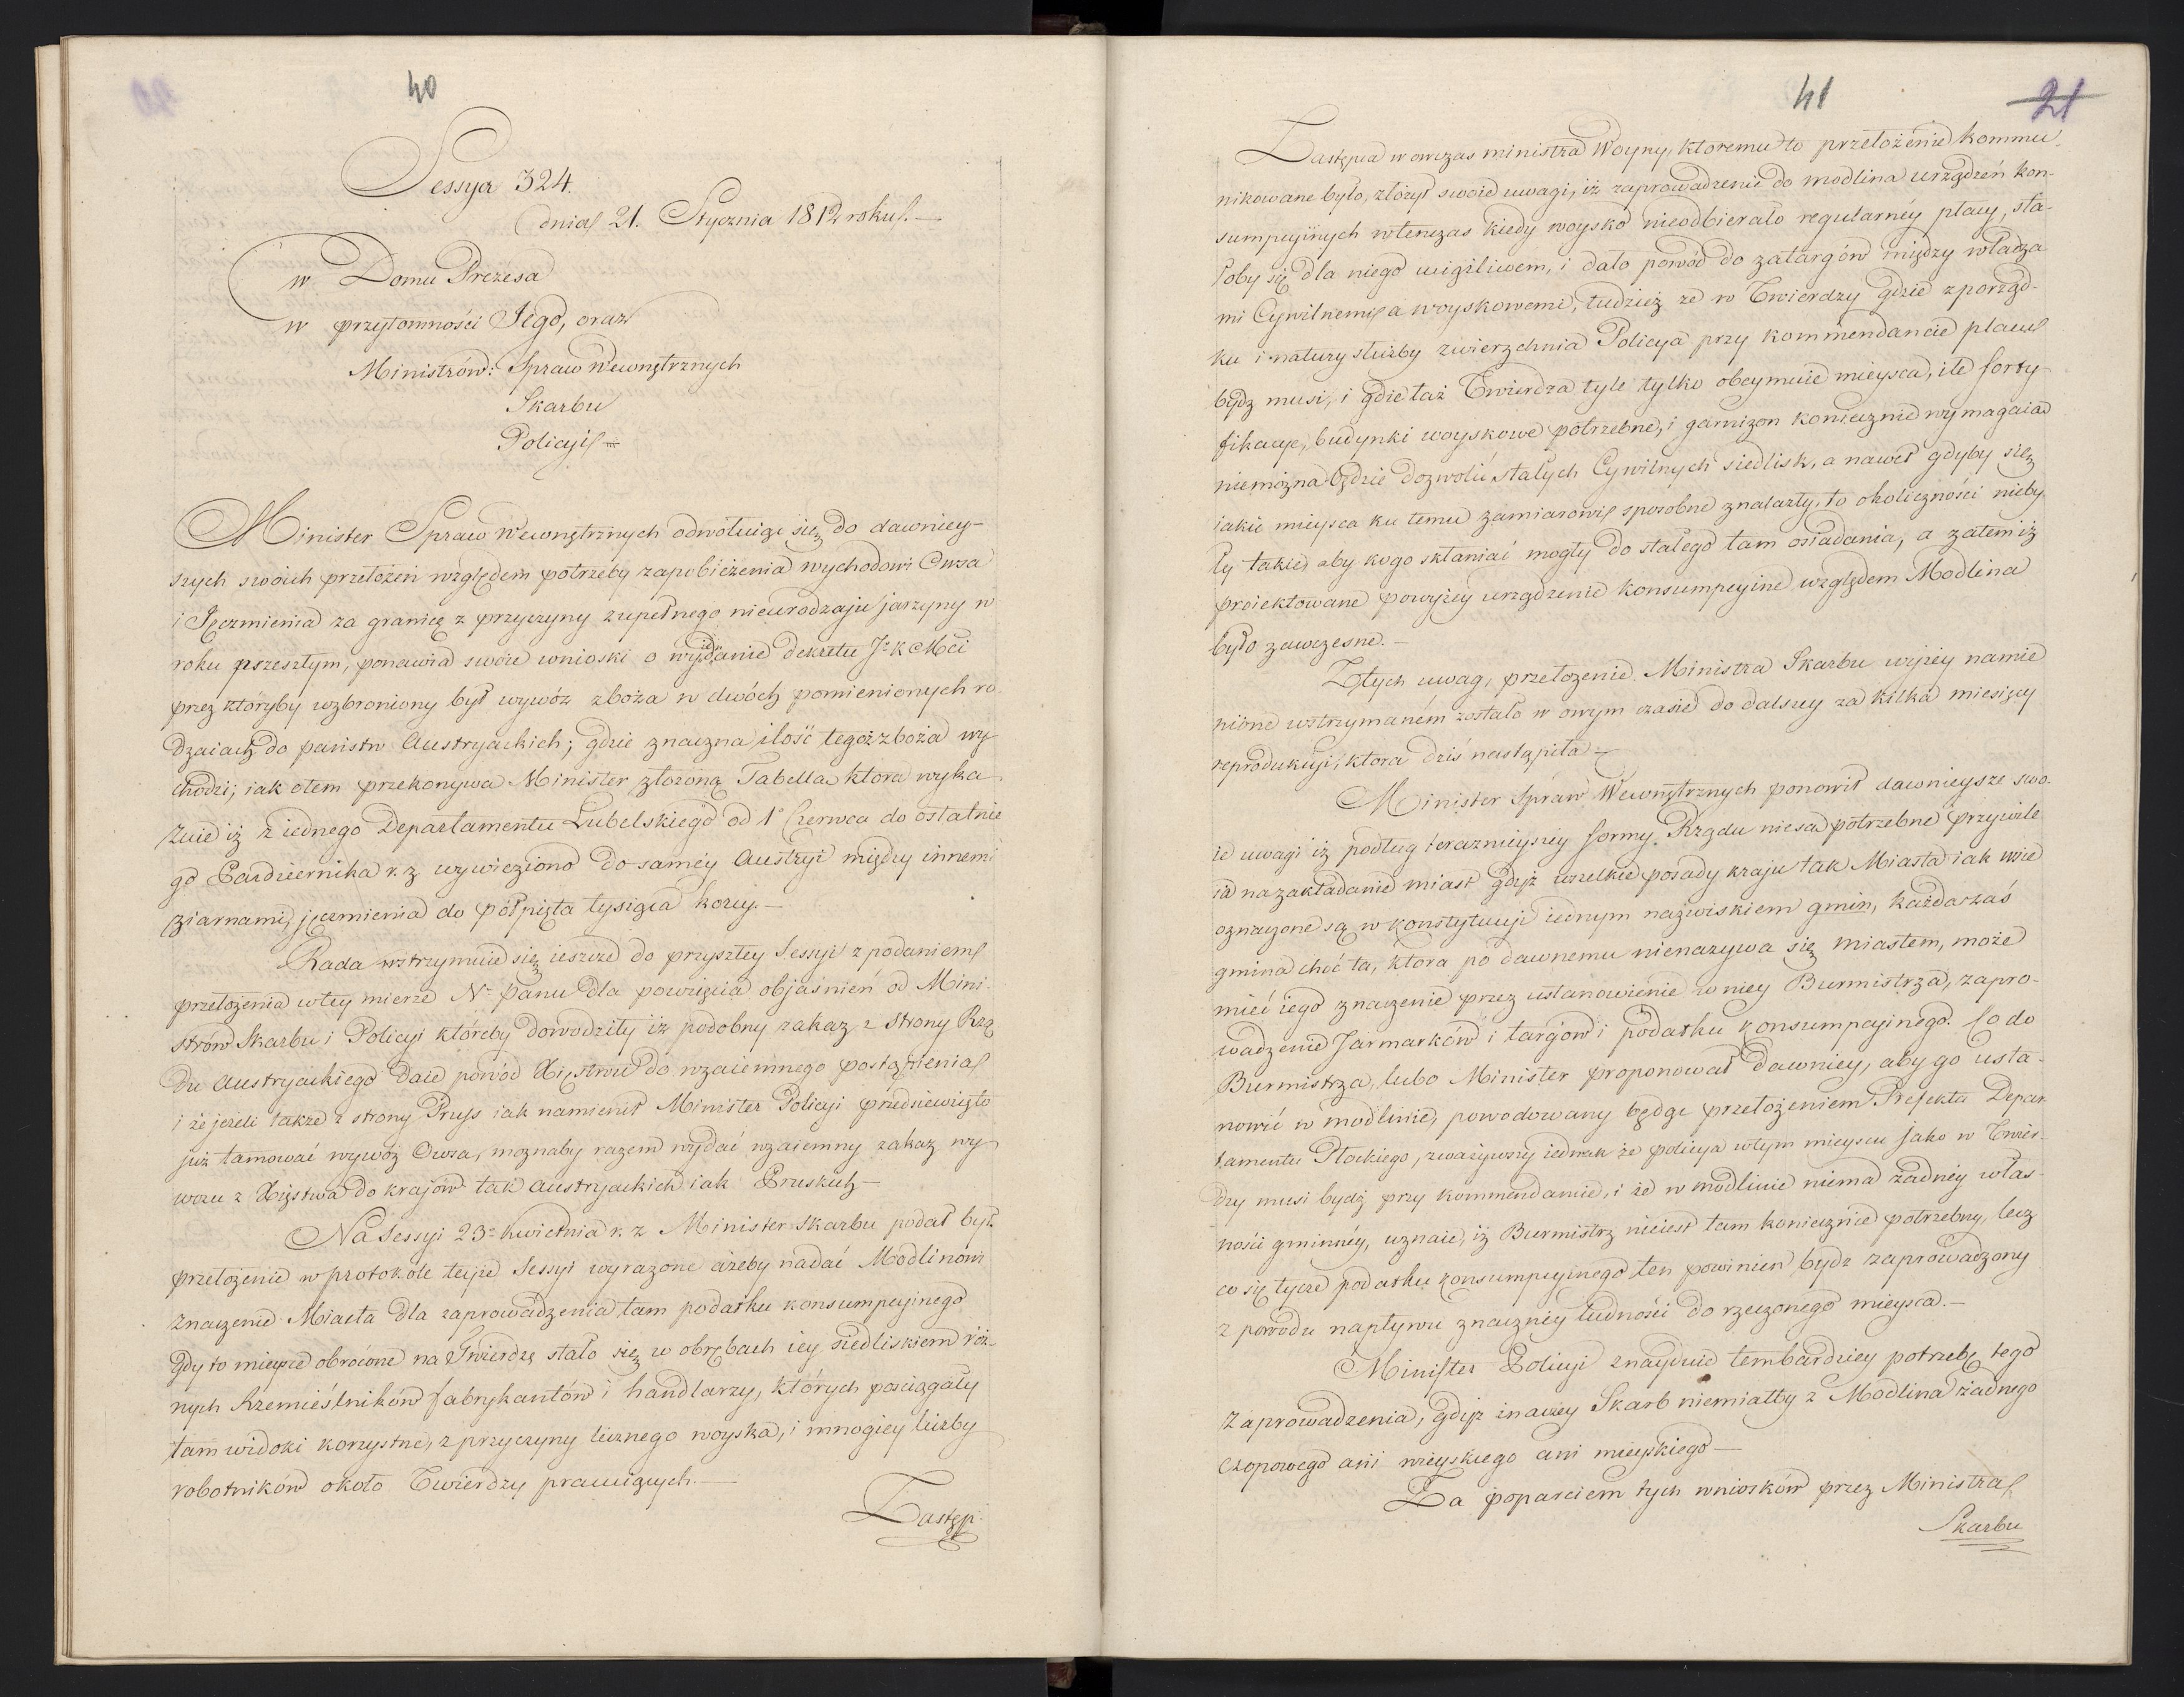 40
Sessya 324.
dnia 21. Stycznia 1812 roku.—
w Domu Prezesa
w przytomności Jego, oraz
Ministrów: Spraw Wewnętrznych
Skarbu
Policyi —
Minister Spraw Wewnętrznych odwołuiąc się do dawniey-
szych swoich przełożeń względem potrzeby zapobieżenia wychodowi Owsa
i Jęczmienia za granicę z przyczyny zupełnego nieurodzaju jarzyny w
roku przeszłym, ponawia swoie wnioski o wydanie dekretu JKMci
przez któryby wzbroniony był wywóz zboża w dwóch pomienionych ro-
dzaiach do państw Austryackich; gdzie znaczna ilość tegoż zboża wy
chodzi; iak otem przekonywa Minister złożoną Tabella która wyka-
zuie iż z iednego Departamentu Lubelskiego od 1° Czerwca do ostatnie
go Pazdziernika r. z. wywieziono do saméy Austryi między innemi
ziarnami, jęczmienia do półpięta tysiąca korcy.—
Rada wstrzymuie się ieszcze do przyszłey Sessyi z podaniem
przełożenia wtey mierze N. Panu dla powzięcia objaśnień od Mini-
strów Skarbu i Policyi któreby dowodziły iż podobny zakaz z strony Rzą
du Austryackiego daie powód Xięstwu do wzaiemnego postąpienia
i że jeżeli także z strony Pruss iak namienił Minister Policyi przedsiewzięto
już tamować wywóz Owsa, możnaby razem wydać wzaiemny zakaz wy
wozu z Xięstwa do krajów tak Austryackich iak Pruskich—
Na Sessyi 23° kwietnia r. z Minister Skarbu podał był
przełożenie w protokole teyże Sessyi wyrażone ażeby nadać Modlinowi
znaczenie Miasta dla zaprowadzenia tam podatku konsumpcyinego
gdy to mieysce obrócone na Twierdzę stało się w obrębach iey siedliskiem róż-
nych Rzemieślników fabrykantów i handlarzy, których pościągały
tam widoki korzystne, z przyczyny licznego woyska, i mnogiey liczby
robotników około Twierdzy pracuiących.—
Zastęp-
41
21
Zastępca wówczas ministra Woyny, ktoremu to przełożenie kommu-
nikowane było, złożył swoie uwagi, iż zaprowadzenie do modlina urządzeń kon-
sumpcyinych wtenczas kiedy woysko nieodbierało regularnéy płacy, sta-
łoby się dla niego uciążliwem, i dało powód do zatargów między władza
mi Cywilnemi a woyskowemi, tudzież że w Twierdzy gdzie zporząd-
ku i natury służby zwierzchnia Policya przy kommendancie placu
bydz musi, i gdie taż Twierdza tyle tylko obeymuie mieysca, ile forty
fikacye, budynki woyskowe potrzebne, i garnizon koniecznie wymagaia
niemożna będzie dozwolić stałych Cywilnych siedlisk, a nawet gdyby się
iakie mieysca ku temu zamiarowi sposobne znalazły, to okoliczności nieby
ły takie, aby kogo skłaniać mogły do stałego tam osiadania, a zatem iż
proiektowane powyżey urządzenie konsumpcyine względem Modlina
było zawczesne.—
Ztych uwag, przełożenie Ministra Skarbu wyżey namie
nione wstrzymaném zostało w owym czasie do dalszey za kilka miesięcy
reprodukcyi, ktora dziś nastąpiła—
Minister Spraw Wewnętrznych ponowił dawnieysze swo-
ie uwagi iż podług terazniejszey formy Rządu niesą potrzebne przywile
ia na zakładanie miast gdyż wszelkie posady kraju tak Miasta iak wsie
oznaczone są w konstytucyi iednym nazwiskiem gmin, każda zaś
gmina choć ta, która po dawnemu nienazywa się miastem, może
mieć iego znaczenie przez ustanowienie w niey Burmistrza, zapro-
wadzenie Jarmarków i targów i podatku konsumpcyinego. Co do
Burmistrza, lubo Minister proponował dawniey, aby go usta-
nowić w modlinie, powodowany będąc przełożeniem Prefekta Depar
tamentu Płockiego, zważywszy iednak że policya wtym mieyscu jako w Twier-
dzy musi bydź przy kommendancie, i że w modlinie niema żadney włas-
ności gminnéy, uznaie, iż Burmistrz nieiest tam koniecznie potrzebny, lecz
co się tycze podatku konsumpcyinego ten powinien bydz zaprowadzony
z powodu napływu znaczney ludności do rzeczonego mieysca.—
Minister Policyi znayduie tembardziey potrzebę tego
zaprowadzenia, gdyż inaczey Skarb niemiałby z Modlina żadnego
czopowego ani wieyskiego ani mieyskiego—
Za poparciem tych wniosków przez Ministra
Skarbu